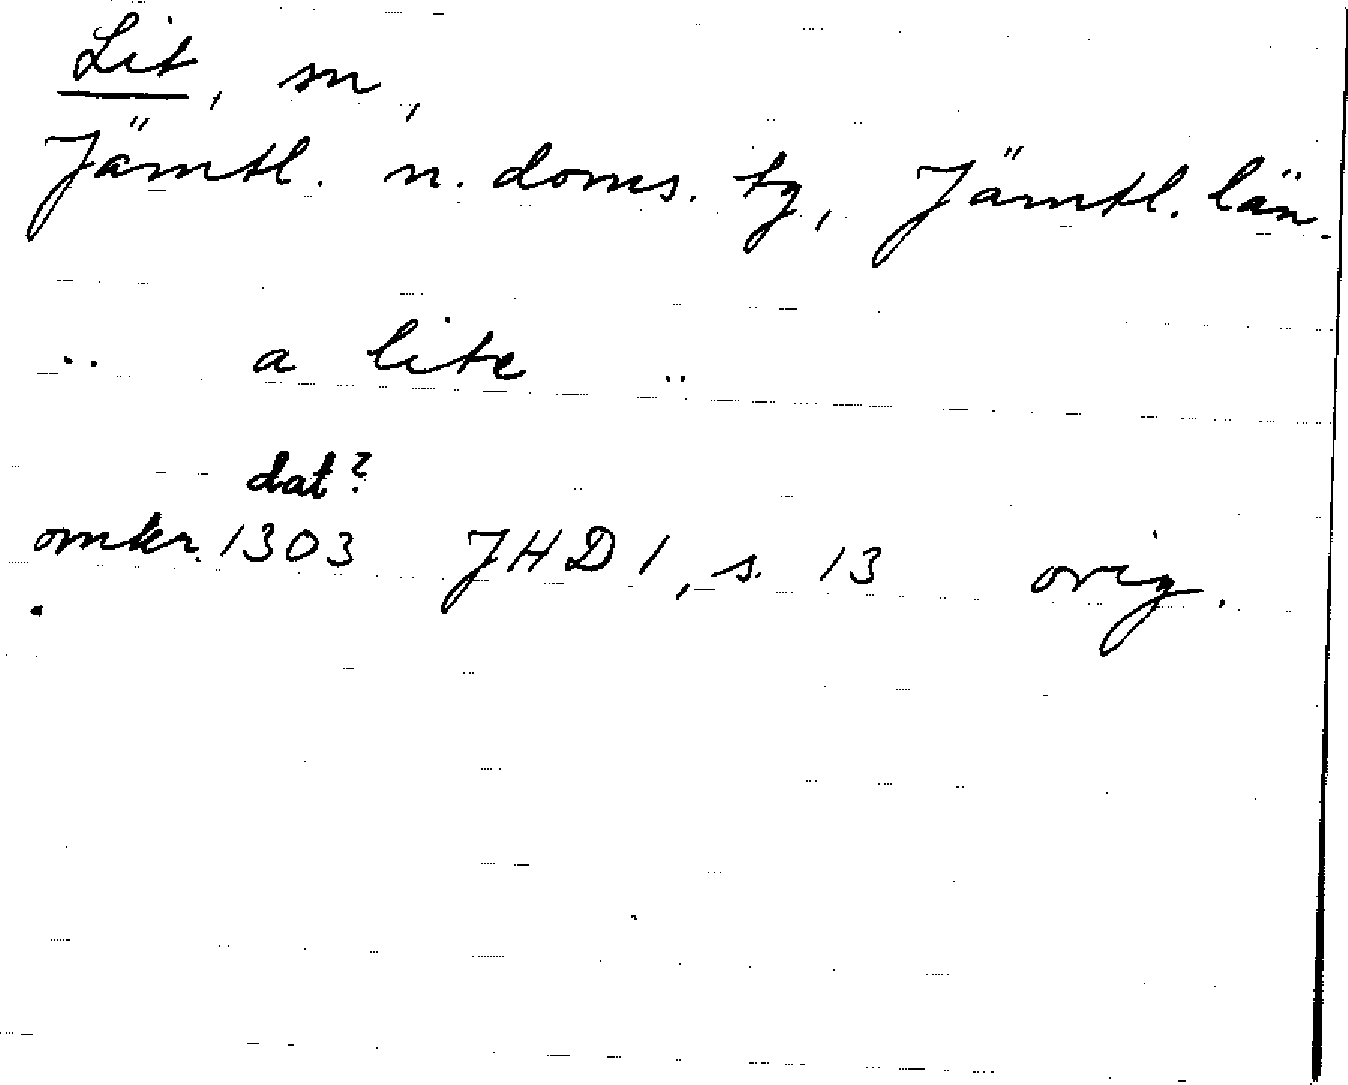 Lit, sn,
Jämtl. n. doms. tg, Jämtl. län.
.. a lite ..
dat?
omkr. 1303 JHD 1, s. 13 orig.